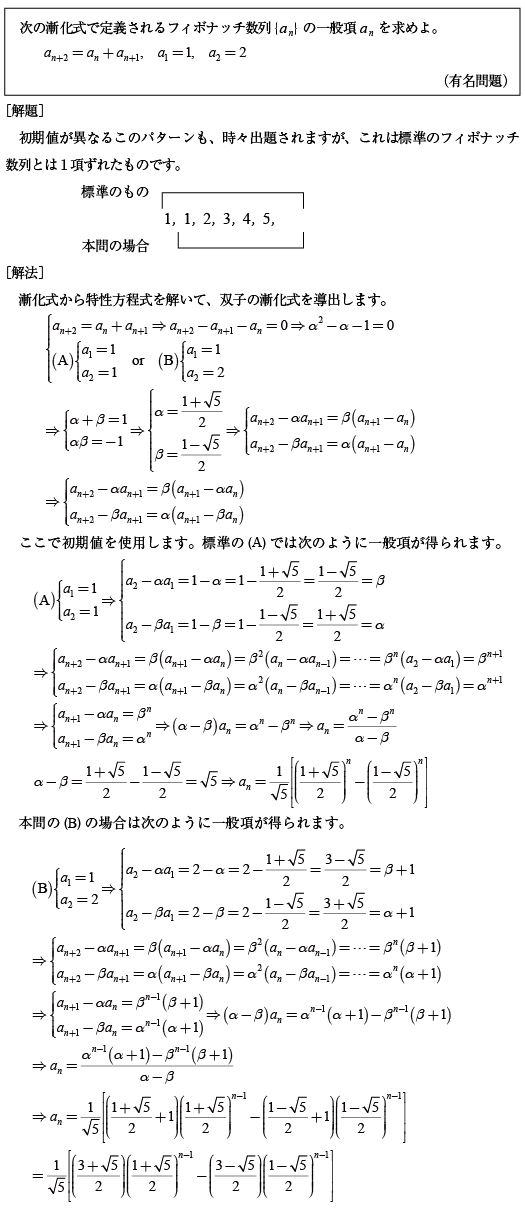 次の漸化式で定義されるフィボナッチ数列{aₙ}の一般項aₙを求めよ。
aₙ₊₂＝aₙ＋aₙ₊₁, a₁＝1, a₂＝2
（有名問題）
［解題］
初期値が異なるこのパターンも、時々出題されますが、これは標準のフィボナッチ
数列とは１項ずれたものです。
標準のもの
1, 1, 2, 3, 4, 5,
本問の場合
［解法］
漸化式から特性方程式を解いて、双子の漸化式を導出します。
{aₙ₊₂＝aₙ＋aₙ₊₁⇒aₙ₊₂−aₙ₊₁−aₙ＝0⇒α²−α−1＝0
(A){a₁＝1, a₂＝1 or (B){a₁＝1, a₂＝2
⇒{α＋β＝1, αβ＝−1 ⇒{α＝(1＋√5)/2, β＝(1−√5)/2 ⇒{aₙ₊₂−αaₙ₊₁＝β(aₙ₊₁−aₙ), aₙ₊₂−βaₙ₊₁＝α(aₙ₊₁−aₙ)
⇒{aₙ₊₂−αaₙ₊₁＝β(aₙ₊₁−αaₙ)
aₙ₊₂−βaₙ₊₁＝α(aₙ₊₁−βaₙ)
ここで初期値を使用します。標準の(A)では次のように一般項が得られます。
(A){a₁＝1, a₂＝1 ⇒{a₂−αa₁＝1−α＝1−(1＋√5)/2＝(1−√5)/2＝β
a₂−βa₁＝1−β＝1−(1−√5)/2＝(1＋√5)/2＝α
⇒{aₙ₊₂−αaₙ₊₁＝β(aₙ₊₁−αaₙ)＝β²(aₙ−αaₙ₋₁)＝⋯＝βⁿ(a₂−αa₁)＝βⁿ⁺¹
aₙ₊₂−βaₙ₊₁＝α(aₙ₊₁−βaₙ)＝α²(aₙ−βaₙ₋₁)＝⋯＝αⁿ(a₂−βa₁)＝αⁿ⁺¹
⇒{aₙ₊₁−αaₙ＝βⁿ, aₙ₊₁−βaₙ＝αⁿ ⇒(α−β)aₙ＝αⁿ−βⁿ⇒aₙ＝(αⁿ−βⁿ)/(α−β)
α−β＝(1＋√5)/2−(1−√5)/2＝√5⇒aₙ＝1/√5[((1＋√5)/2)ⁿ−((1−√5)/2)ⁿ]
本問の(B)の場合は次のように一般項が得られます。
(B){a₁＝1, a₂＝2 ⇒{a₂−αa₁＝2−α＝2−(1＋√5)/2＝(3−√5)/2＝β＋1
a₂−βa₁＝2−β＝2−(1−√5)/2＝(3＋√5)/2＝α＋1
⇒{aₙ₊₂−αaₙ₊₁＝β(aₙ₊₁−αaₙ)＝β²(aₙ−αaₙ₋₁)＝⋯＝βⁿ(β＋1)
aₙ₊₂−βaₙ₊₁＝α(aₙ₊₁−βaₙ)＝α²(aₙ−βaₙ₋₁)＝⋯＝αⁿ(α＋1)
⇒{aₙ₊₁−αaₙ＝βⁿ⁻¹(β＋1), aₙ₊₁−βaₙ＝αⁿ⁻¹(α＋1) ⇒(α−β)aₙ＝αⁿ⁻¹(α＋1)−βⁿ⁻¹(β＋1)
⇒aₙ＝(αⁿ⁻¹(α＋1)−βⁿ⁻¹(β＋1))/(α−β)
⇒aₙ＝1/√5[((1＋√5)/2＋1)((1＋√5)/2)ⁿ⁻¹−((1−√5)/2＋1)((1−√5)/2)ⁿ⁻¹]
＝1/√5[((3＋√5)/2)((1＋√5)/2)ⁿ⁻¹−((3−√5)/2)((1−√5)/2)ⁿ⁻¹]